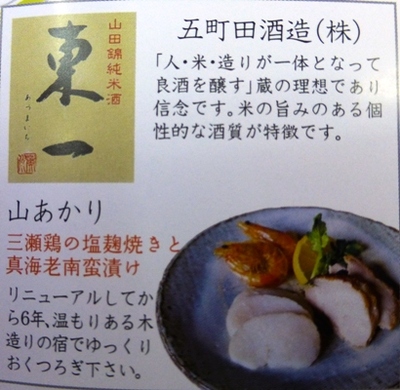 山田錦純米酒
東一
あづまいち
五町田酒造(株)
「人・米・造りが一体となって
良酒を醸す」蔵の理想であり
信念です。米の旨みのある個
性的な酒質が特徴です。
山あかり
三瀬鶏の塩麹焼きと
真海老南蛮漬け
リニューアルしてか
ら6年、温もりある木
造りの宿でゆっくり
おくつろぎ下さい。